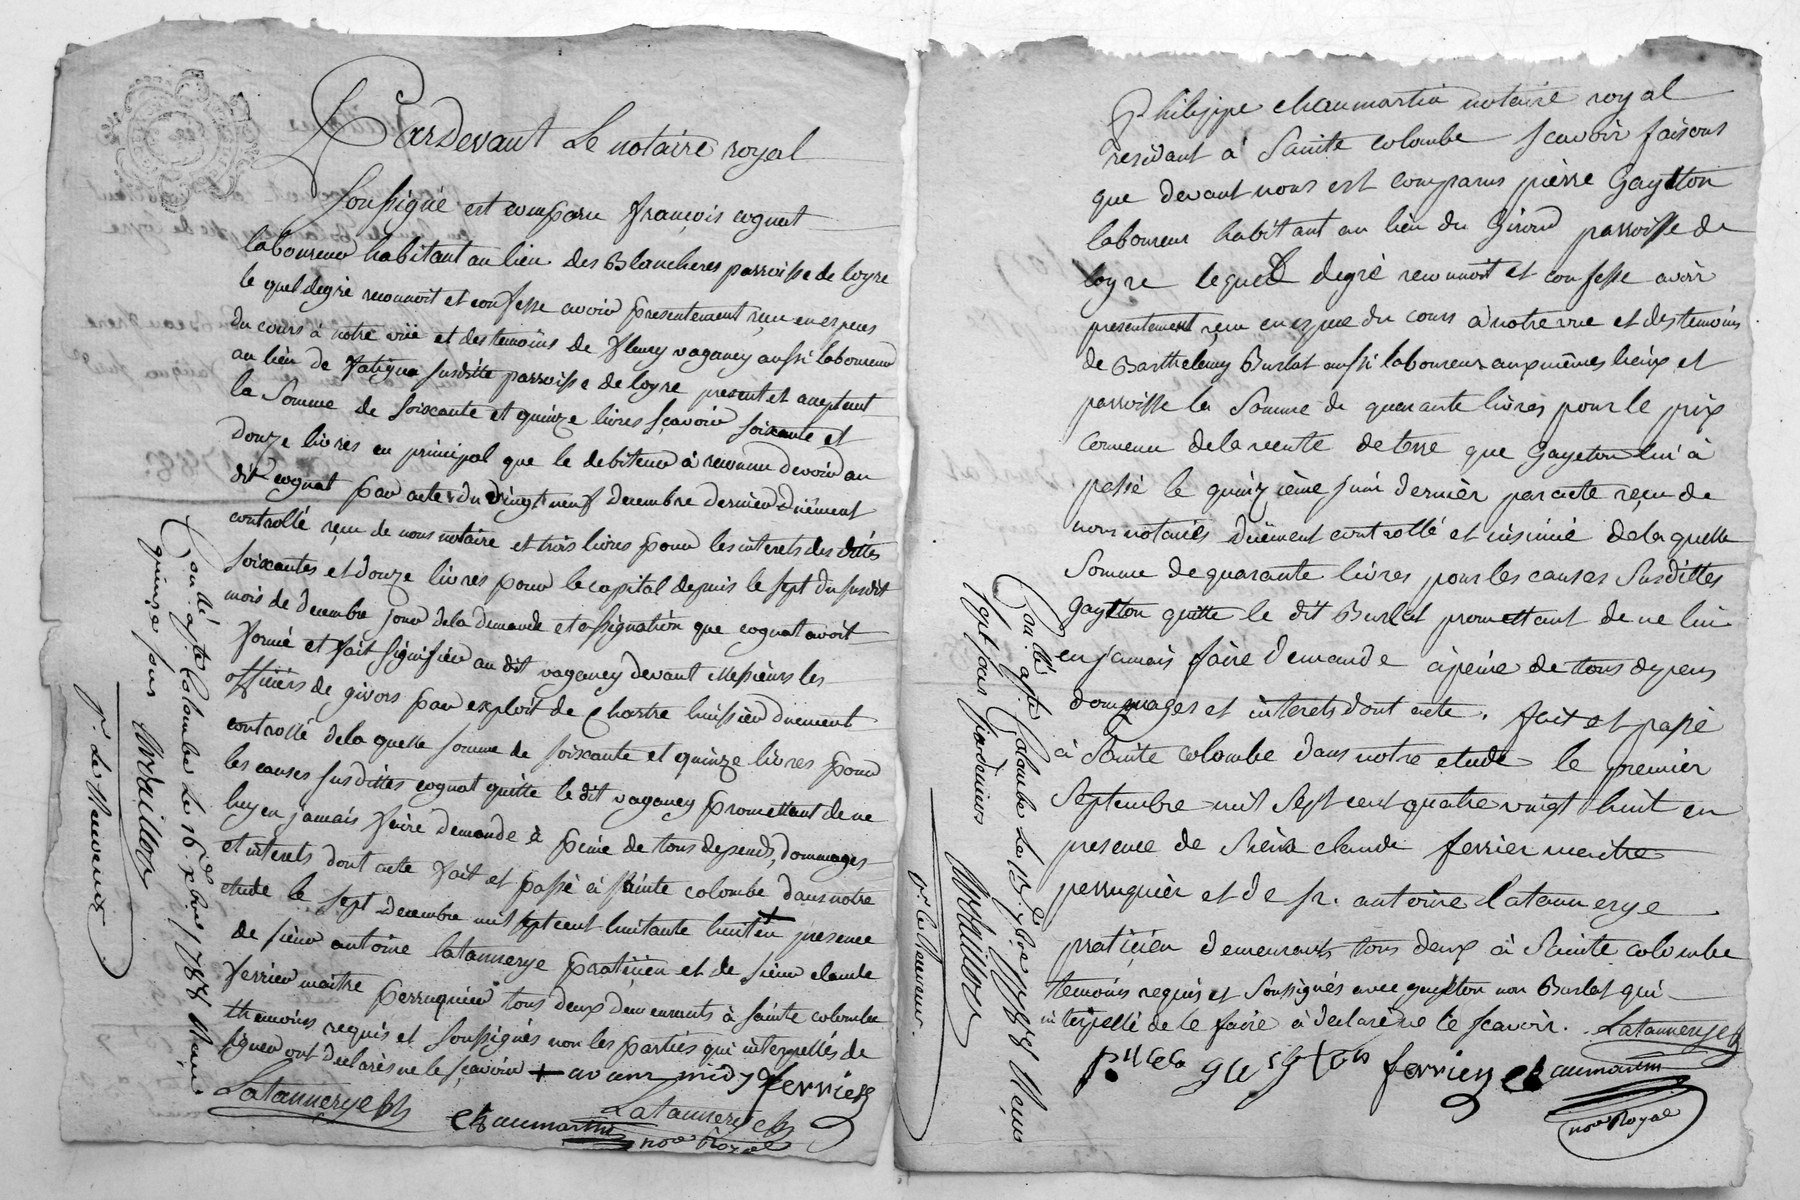 Pardevant Le notaire royal
Soussigné est comparu françois cognat
laboureur habitant au lieu des Blancheres parroisse de loyre
le quel degré reconnoit et confesse avoir presentement reçu en especes
du cours à notre vüe et des temoins de fleury vaganey aussi laboureur
au lieu de susditte parroisse de loyre present et acceptent
la Somme de soixante et quinze livres sçavoir soixante et
douze livres en principal que le debiteur à reconnu devoir au
dit cognat par acte du vingt neuf decembre dernier düement
controllé reçu de nous notaire et trois livres pour les interets des dittes
soixantes et douze livres pour le capital depuis le sept du susdit
mois de decembre jour de la demande et assignation que cognat avoit
formé et fait signifier au dit vaganey devant Messieurs les
officiers de givors par exploit de Chartre huissier düement
controllé de la quelle somme de soixante et quinze livres pour
les causes susdittes cognat quitte le dit vaganey promettant de ne
luy en jamais faire demande à peine de tous depends, dommages
et interets dont acte fait et passé à sainte colombe dans notre
etude le sept decembre mil sept cent huitante huit + en presence
de sieur antoine latannerye praticien et de sieur claude
ferrier maitre perruquier tous deux demeurants à sainte colombe
themoins requis et soussignés non les parties qui interpellés de
signer ont declarés ne le sçavoir + avant midy ferrier
Latannerye
Latannerye
chaumartin
no.re Royal
Con.llé à S.te Colombe le 16 xbre 1788 Reçu
quinze sous
p.r Le Receveur
Philippe chaumartin notaire royal
residant à Sainte colombe sçavoir faisons
que devant nous est comparus pierre Gaytton
laboureur habitant au lieu du Giroud parroisse de
loyre lequel degré reconnoit et confesse avoir
presentement reçu en espece du cours à notre vue et des temoins
de Barthelemy Burlat aussi laboureur aux mêmes lieux et
parroisse la Somme de quarante livres pour le prix
convenu de la vente de terre que Gaytton lui à
passé le quinzième juin dernier par acte reçu de
nous notaires düement controllé et insinué de la quelle
Somme de quarante livres pour les causes Susdittes
gaytton quitte le dit Burlat promettant de ne lui
en jamais faire demande à peine de tous depens
dommages et interets dont acte. fait et passé
à Sainte colombe dans notre etude le premier
Septembre mil Sept cent quatre vingt huit en
presence de Sieur claude ferrier maitre
perruquier et de Sr. antoine latannerye
praticien demeurants tous deux à Sainte colombe
temoins requis et soussignés avec gaytton non Burlat qui
interpellé de le faire à declaré ne le scavoir. Latannerye
ferrier chaumartin
no.re Royal
Con.llé à S.te Colombe le 15 7bre 1788 Reçu
Sept sous six deniers
p.r le Receveur